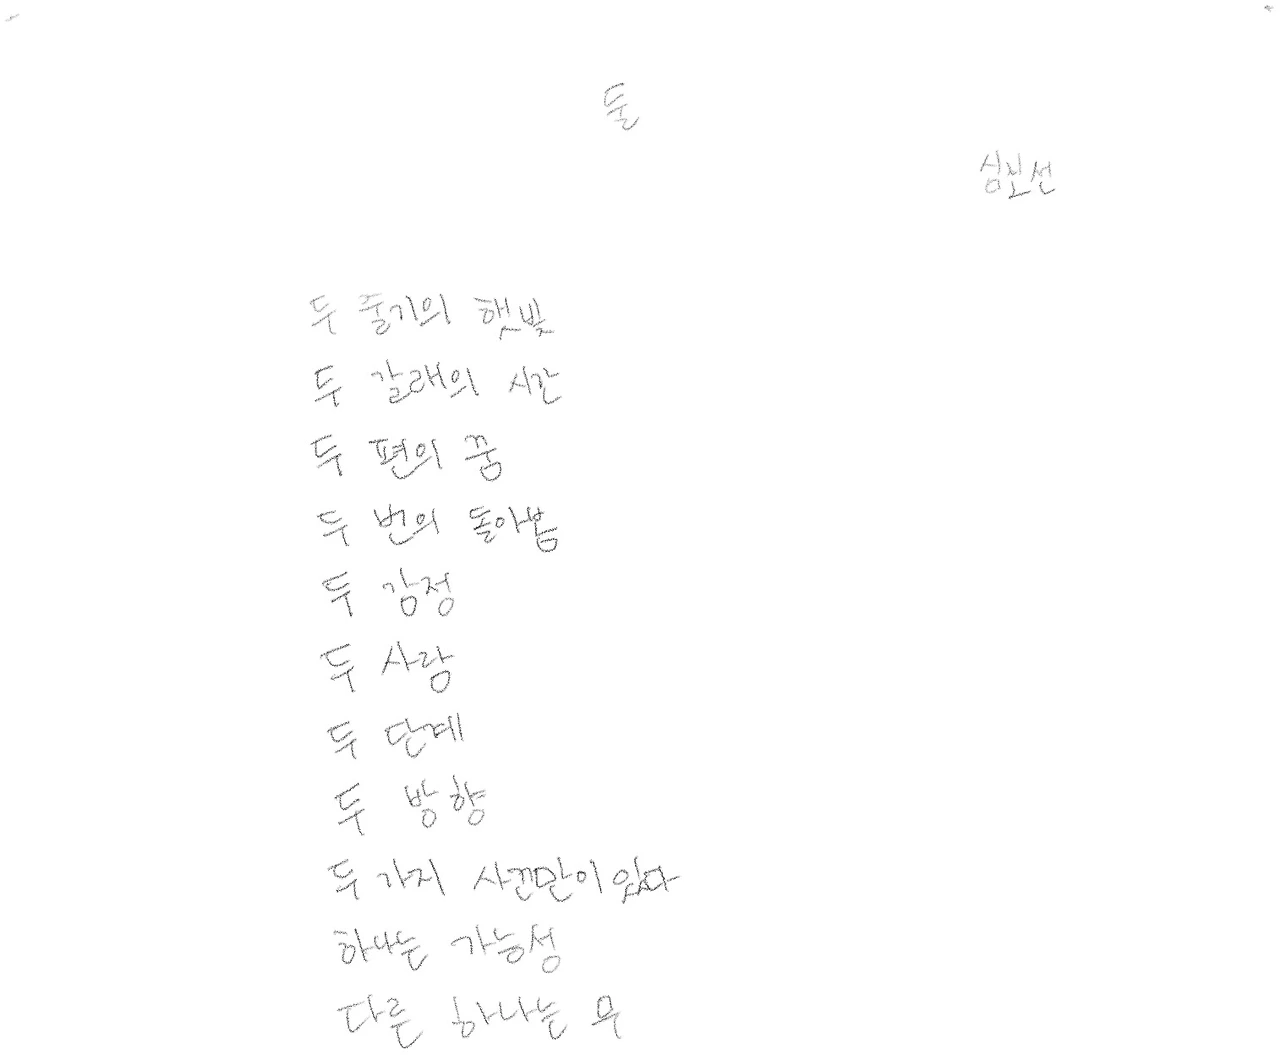 둘
심진선
두 줄기의 햇빛
두 갈래의 시간
두 편의 꿈
두 번의 돌아봄
두 감정
두 사람
두 단계
두 방향
두 가지 사건만이 있다
하나는 가능성
다른 하나는 무